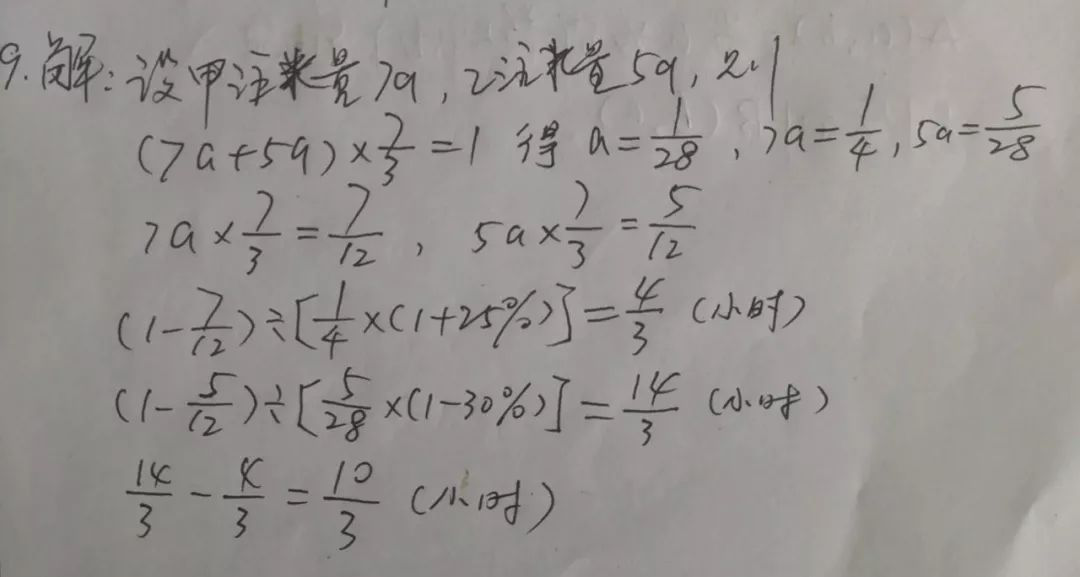 9.解:设甲注水量7a,乙注水量5a,则
(7a+5a)×7/3=1 得 a=1/28,7a=1/4,5a=5/28
7a×7/3=7/12,5a×7/3=5/12
(1-7/12)÷[1/4×(1+25%)]=4/3(小时)
(1-5/12)÷[5/28×(1-30%)]=14/3(小时)
14/3-4/3=10/3(小时)